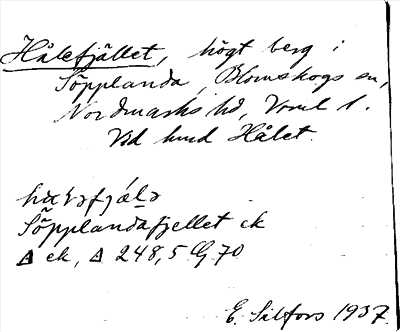 Hålefjället, högt berg i
Söpplanda, Blomskogs sn,
Nordmarks hd, Vrml l.
Vid hmd Hålet.
Söpplandafjellet ek
Δ ek, Δ 248,5 G 70
E. Salfors 1937.